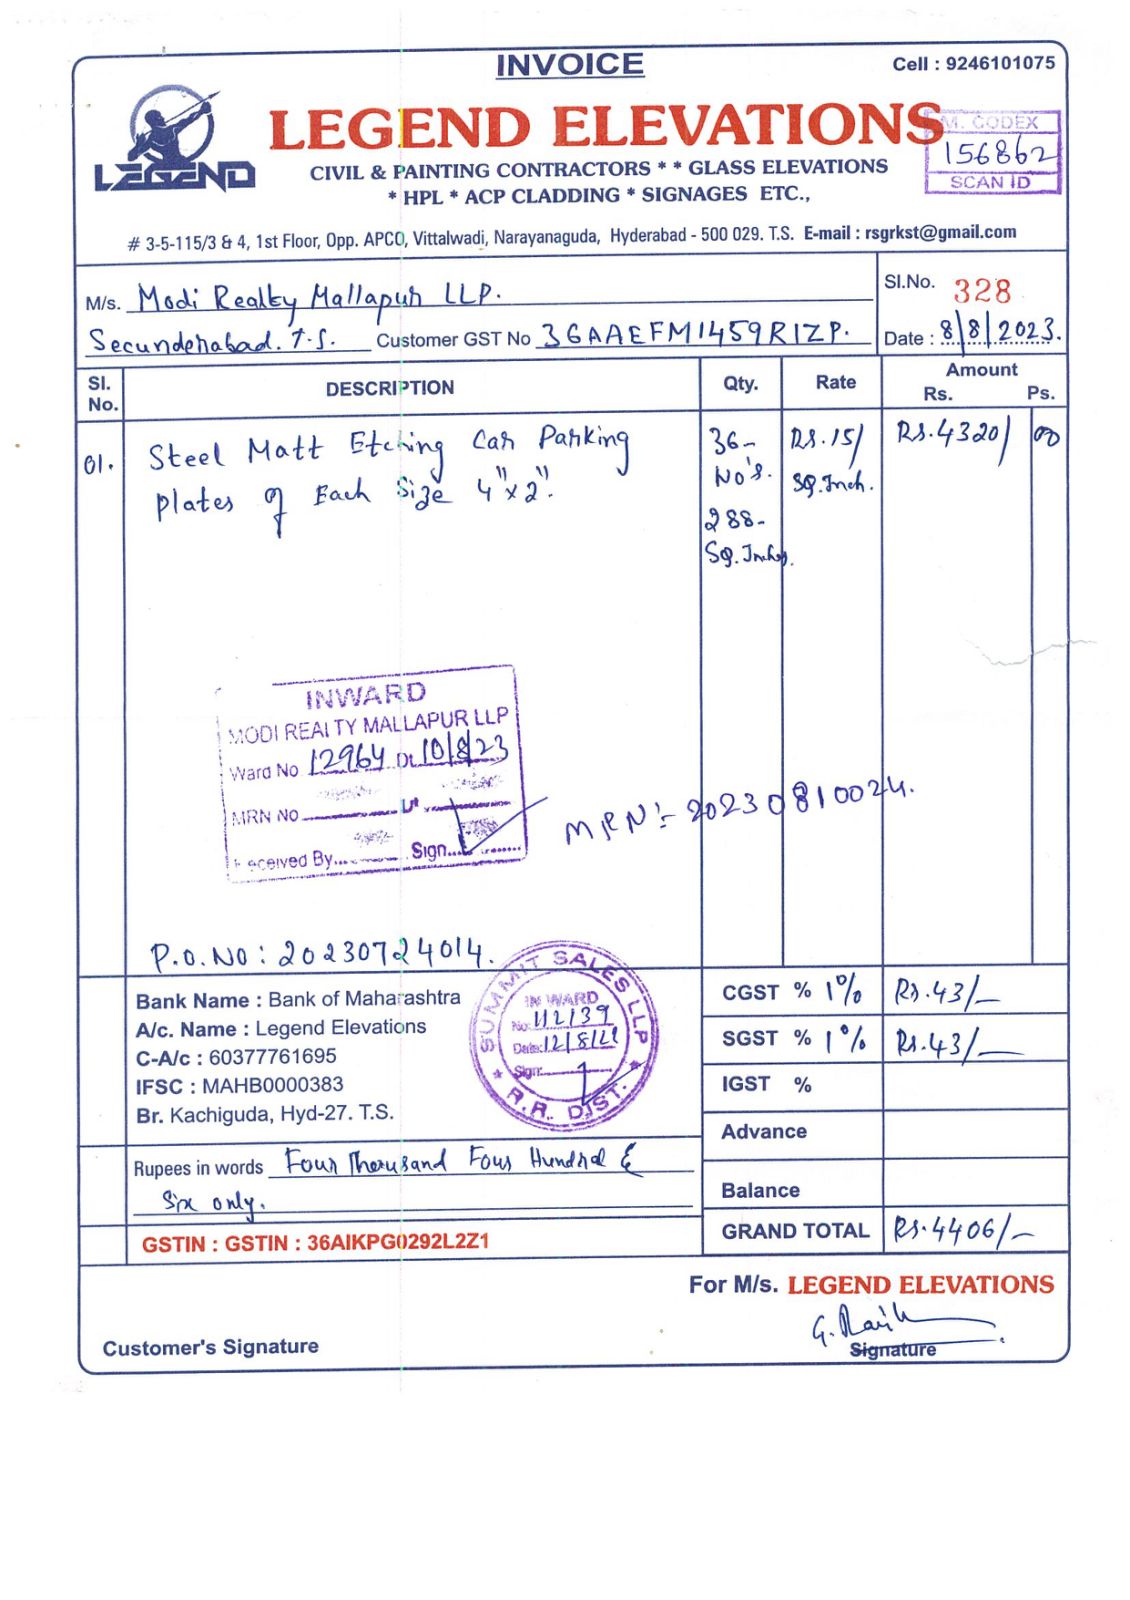 INVOICE
Cell : 9246101075
LEGEND
LEGEND ELEVATIONS
CIVIL & PAINTING CONTRACTORS * * GLASS ELEVATIONS
* HPL * ACP CLADDING * SIGNAGES ETC.,
M. CODEX
156862
SCAN ID
# 3-5-115/3 & 4, 1st Floor, Opp. APCO, Vittalwadi, Narayanaguda, Hyderabad - 500 029. T.S. E-mail : rsgrkst@gmail.com
M/s. Modi Realty Mallapur LLP.
Secunderabad. T.S. Customer GST No 36AAEFM1459R1ZP.
Sl.No. 328
Date : 8/8/2023.
Sl. No. DESCRIPTION Qty. Rate Amount Rs. Ps.
01. Steel Matt Etching Car Parking 36- Rs.15/ Rs.4320/ 00
plates of Each Size 4"x2". No's. Sq.Inch.
288-
Sq.Inches.
INWARD
MODI REALTY MALLAPUR LLP
Ward No 12964 Dt. 10/8/23
MRN No Dt
Received By Sign
MRN:- 20230810024.
P.O.NO: 20230724014.
SUMMIT SALES LLP
IN WARD
No: 112139
Date: 12/8/23
Sign:
R.R. DIST.
Bank Name : Bank of Maharashtra
A/c. Name : Legend Elevations
C-A/c : 60377761695
IFSC : MAHB0000383
Br. Kachiguda, Hyd-27. T.S.
CGST % 1% Rs.43/-
SGST % 1% Rs.43/-
IGST %
Advance
Balance
GRAND TOTAL Rs.4406/-
Rupees in words Four Thousand Four Hundred &
Six only.
GSTIN : GSTIN : 36AIKPG0292L2Z1
For M/s. LEGEND ELEVATIONS
Customer's Signature
Signature